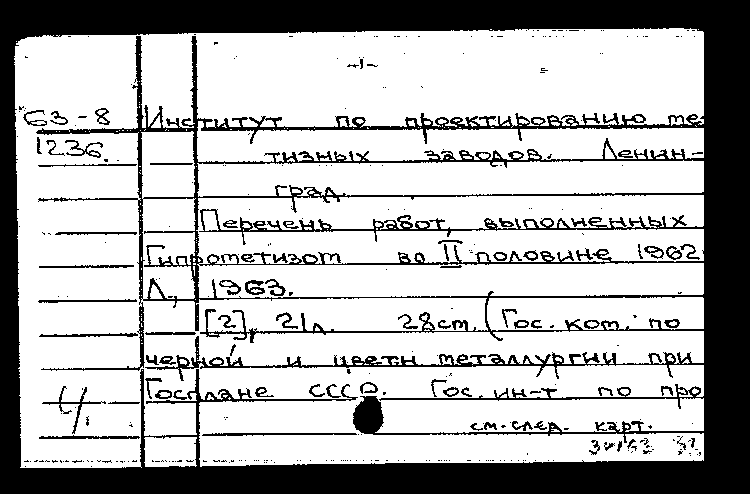 -1-
63-8 Институт по проектированию ме
1236. тизных заводов. Ленин-
град.
Перечень работ, выполненных
Гипрометизом во II половине 1962
Л., 1963.
[2], 21л. 28см. (Гос. ком. по
черной и цветн металлургии при
Госплане СССР. Гос. ин-т по про
см. след. карт.